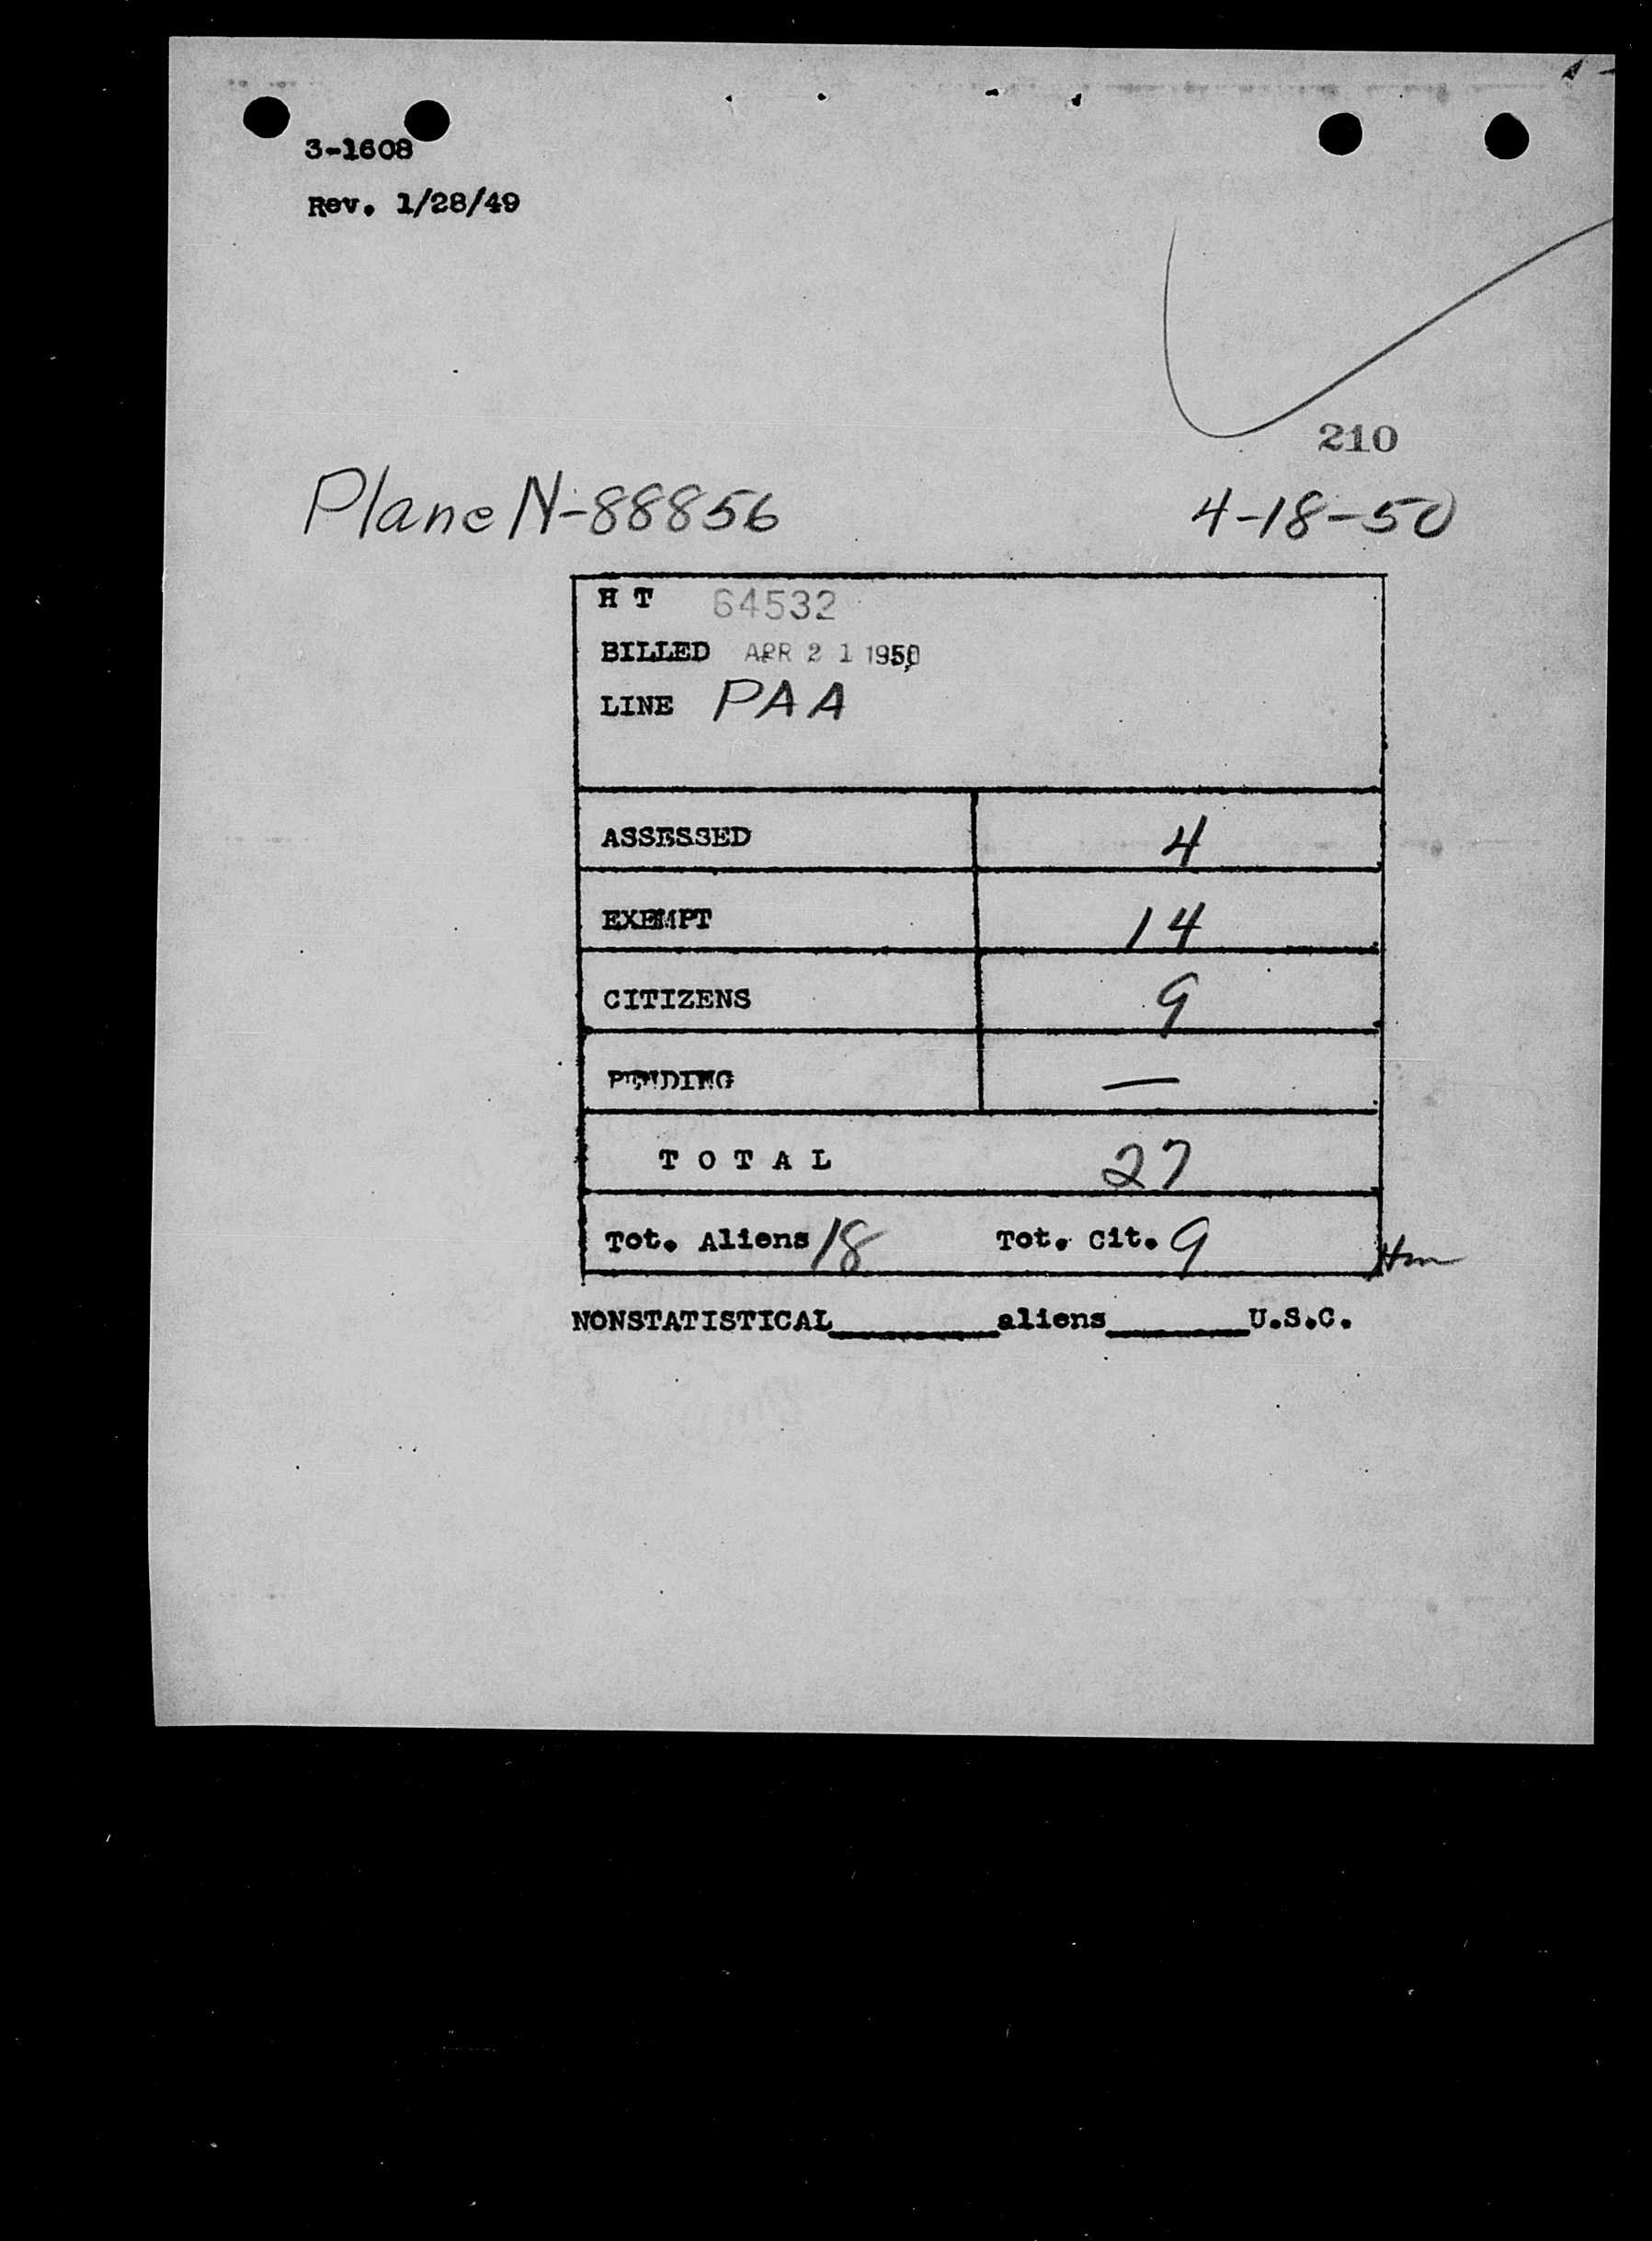 3-1608
Rev. 1/28/49
210
Plane N-88856 4-18-50
H T 64532
BILLED APR 21 1950
LINE PAA
ASSESSED 4
EXEMPT 14
CITIZENS 9
PENDING —
T O T A L 27
Tot. Aliens 18 Tot. Cit. 9 Hm
NONSTATISTICAL__________aliens________U.S.C.